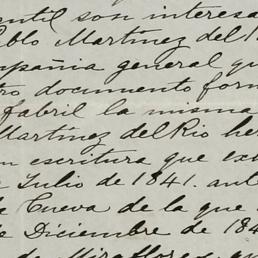 ntil son interesa
ablo Martínez del R
mpañia general qu
tro documento form
fabril la misma
Martínez del Rio her
n escritura que ex
Julio de 1841. ante
e Cueva de la que
e Diciembre de 184
de Miraflores, an